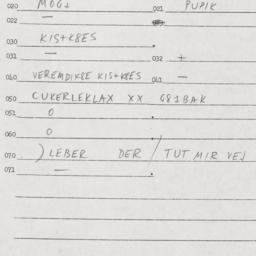 020 MOG+ 021 PUPIK
022 —
030 KIS+KBES
031 — 032 +
040 VEREMDIKRE KIS+KBES 041 —
050 CUKERLEKLAX XX G81BAK
051 0
060 0
070 ) LEBER DER / TUT MIR VEJ
071 —